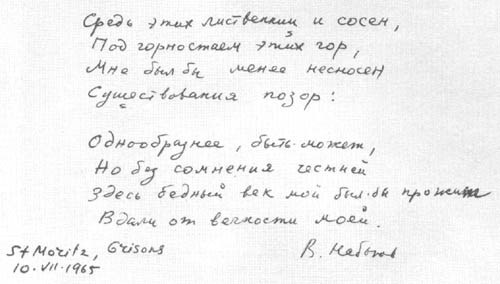 Средь этих лиственниц и сосен,
Под горностаем этих гор,
Мне был бы менее несносен
Существования позор:
Однообразнее, быть-может,
Но без сомнения честней
Здесь бедный век мой был-бы прожит
Вдали от вечности моей.
В. Набоков
St Moritz, Grisons
10.VII.1965